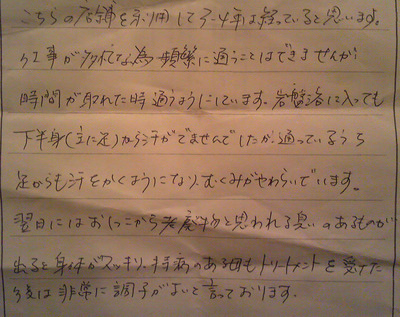 こちらの店舗を利用して3~4年は経っていると思います。
仕事が多忙な為頻繁に通うことはできませんが
時間が取れた時通うようにしています。岩盤浴に入っても
下半身(主に足)から汗がでませんでしたが、通っているうち
足からも汗をかくようになり、むくみがやわらいでいます。
翌日にはおしっこから老廃物と思われる臭いのあるものが
出ると身体がスッキリ、持病のある母もトリートメントを受けた
後は非常に調子がよいと言っております。